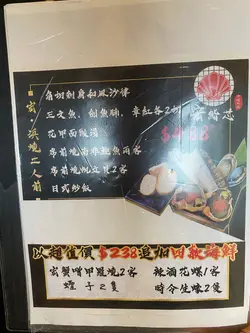 角切刺身和風沙律
三文魚，劍魚腩，章紅各2切
花甲面豉湯
串前燒南非鮑魚兩客
串前燒帆立貝2客
日式炒飯
玄·浜燒二人前
$488
以超值價$238追加四款海鮮
玄蟹味甲羅燒2客
辣酒花螺1客
蟶子2隻
時令生蠔2隻